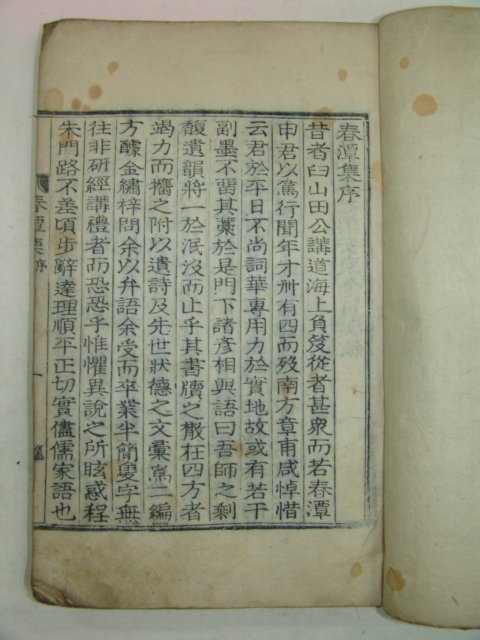 春潭集序
昔者臼山田公講道海上負笈從者甚衆而若春潭
申君以篤行聞年才卅有四而歿南方章甫咸悼惜
云君於平日不尚詞華專用力於實地故或有若干
副墨不畱其藁於是門下諸彦相與語曰吾師之剩
馥遺韻將一於泯沒而止乎其書牘之散在四方者
竭力而攟之附以遺詩及先世狀德之文彙爲二編
方醵金繡梓問余以弁語余受而卒業半簡隻字無
往非研經講禮者而恐恐乎惟懼異說之所眩惑程
朱門路不差頃步辭達理順平正切實儘儒家語也
春潭集 序 一